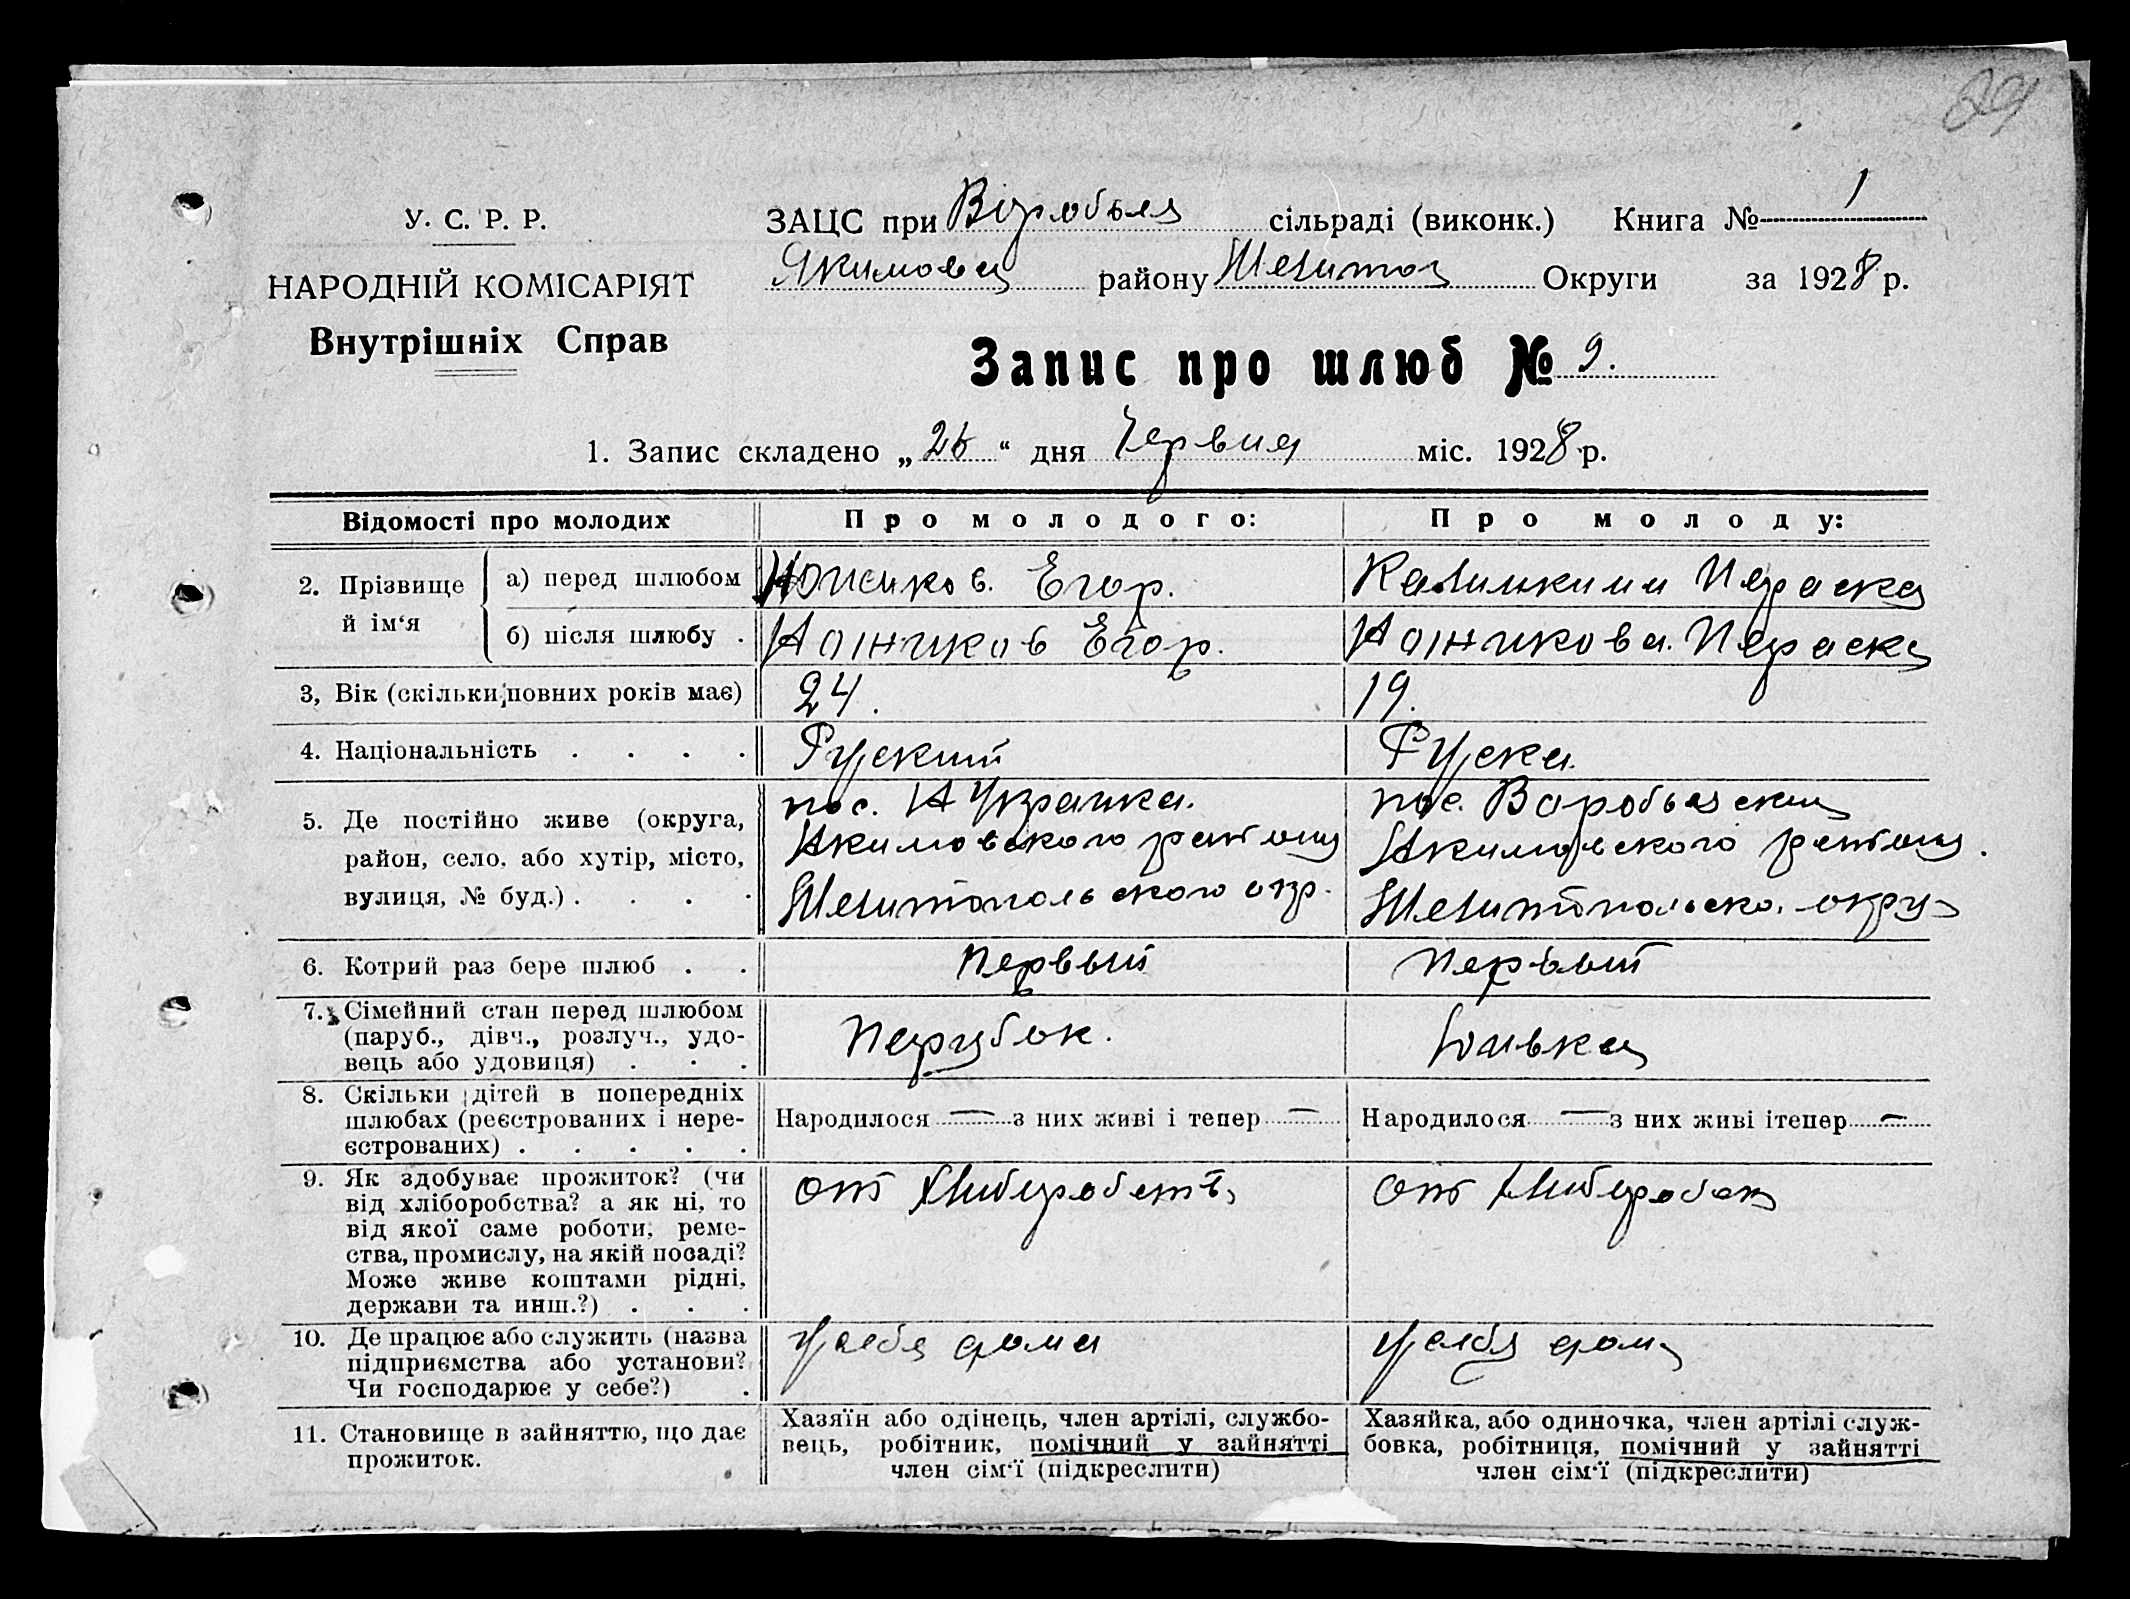 29
У. С. Р. Р.
НАРОДНІЙ КОМІСАРІЯТ
Внутрішніх Справ
ЗАЦС при сільраді (виконк.) Книга № 1
Якимовск району Мелитоп Округи за 1928 р.
Запис про шлюб № 9.
1. Запис складено „26“ дня Червня міс. 1928 р.
Відомості про молодих
Про молодого:
Про молоду:
2. Прізвище й ім‘я
а) перед шлюбом
Егор.
Параска
б) після шлюбу .
Егор.
Параска
3, Вік (скільки повних років має)
24.
19.
4. Національність . . . .
Руский
Руска
5. Де постійно живе (округа,
район, село, або хутір, місто,
вулиця, № буд.) . . . .
пос.
Акимовского района
Мелитопольского окр.
пос.
Акимовского района.
Мелитопольско. окру
6. Котрий раз бере шлюб . .
Первый
Первый
7. Сімейний стан перед шлюбом
(паруб., дівч., розлуч., удо-
вець або удовиця) . . .
Парубок.
8. Скільки дітей в попередніх
шлюбах (реєстрованих і нере-
єстрованих) . . . . .
Народилося — з них живі і тепер —
Народилося — з них живі ітепер —
9. Як здобуває прожиток? (чи
від хліборобства? а як ні, то
від якої саме роботи, реме-
ства, промислу, на якій посаді?
Може живе коштами рідні,
держави та инш.?) . . .
от
от
10. Де працює або служить (назва
підприємства або установи?
Чи господарює у себе?) .
у себя дома
у себя дома
11. Становище в зайняттю, що дає
прожиток.
Хазяїн або одінець, член артілі, службо-
вець, робітник, помічний у зайнятті
член сім‘ї (підкреслити)
Хазяйка, або одиночка, член артілі служ-
бовка, робітниця, помічний у зайнятті
член сім‘ї (підкреслити)